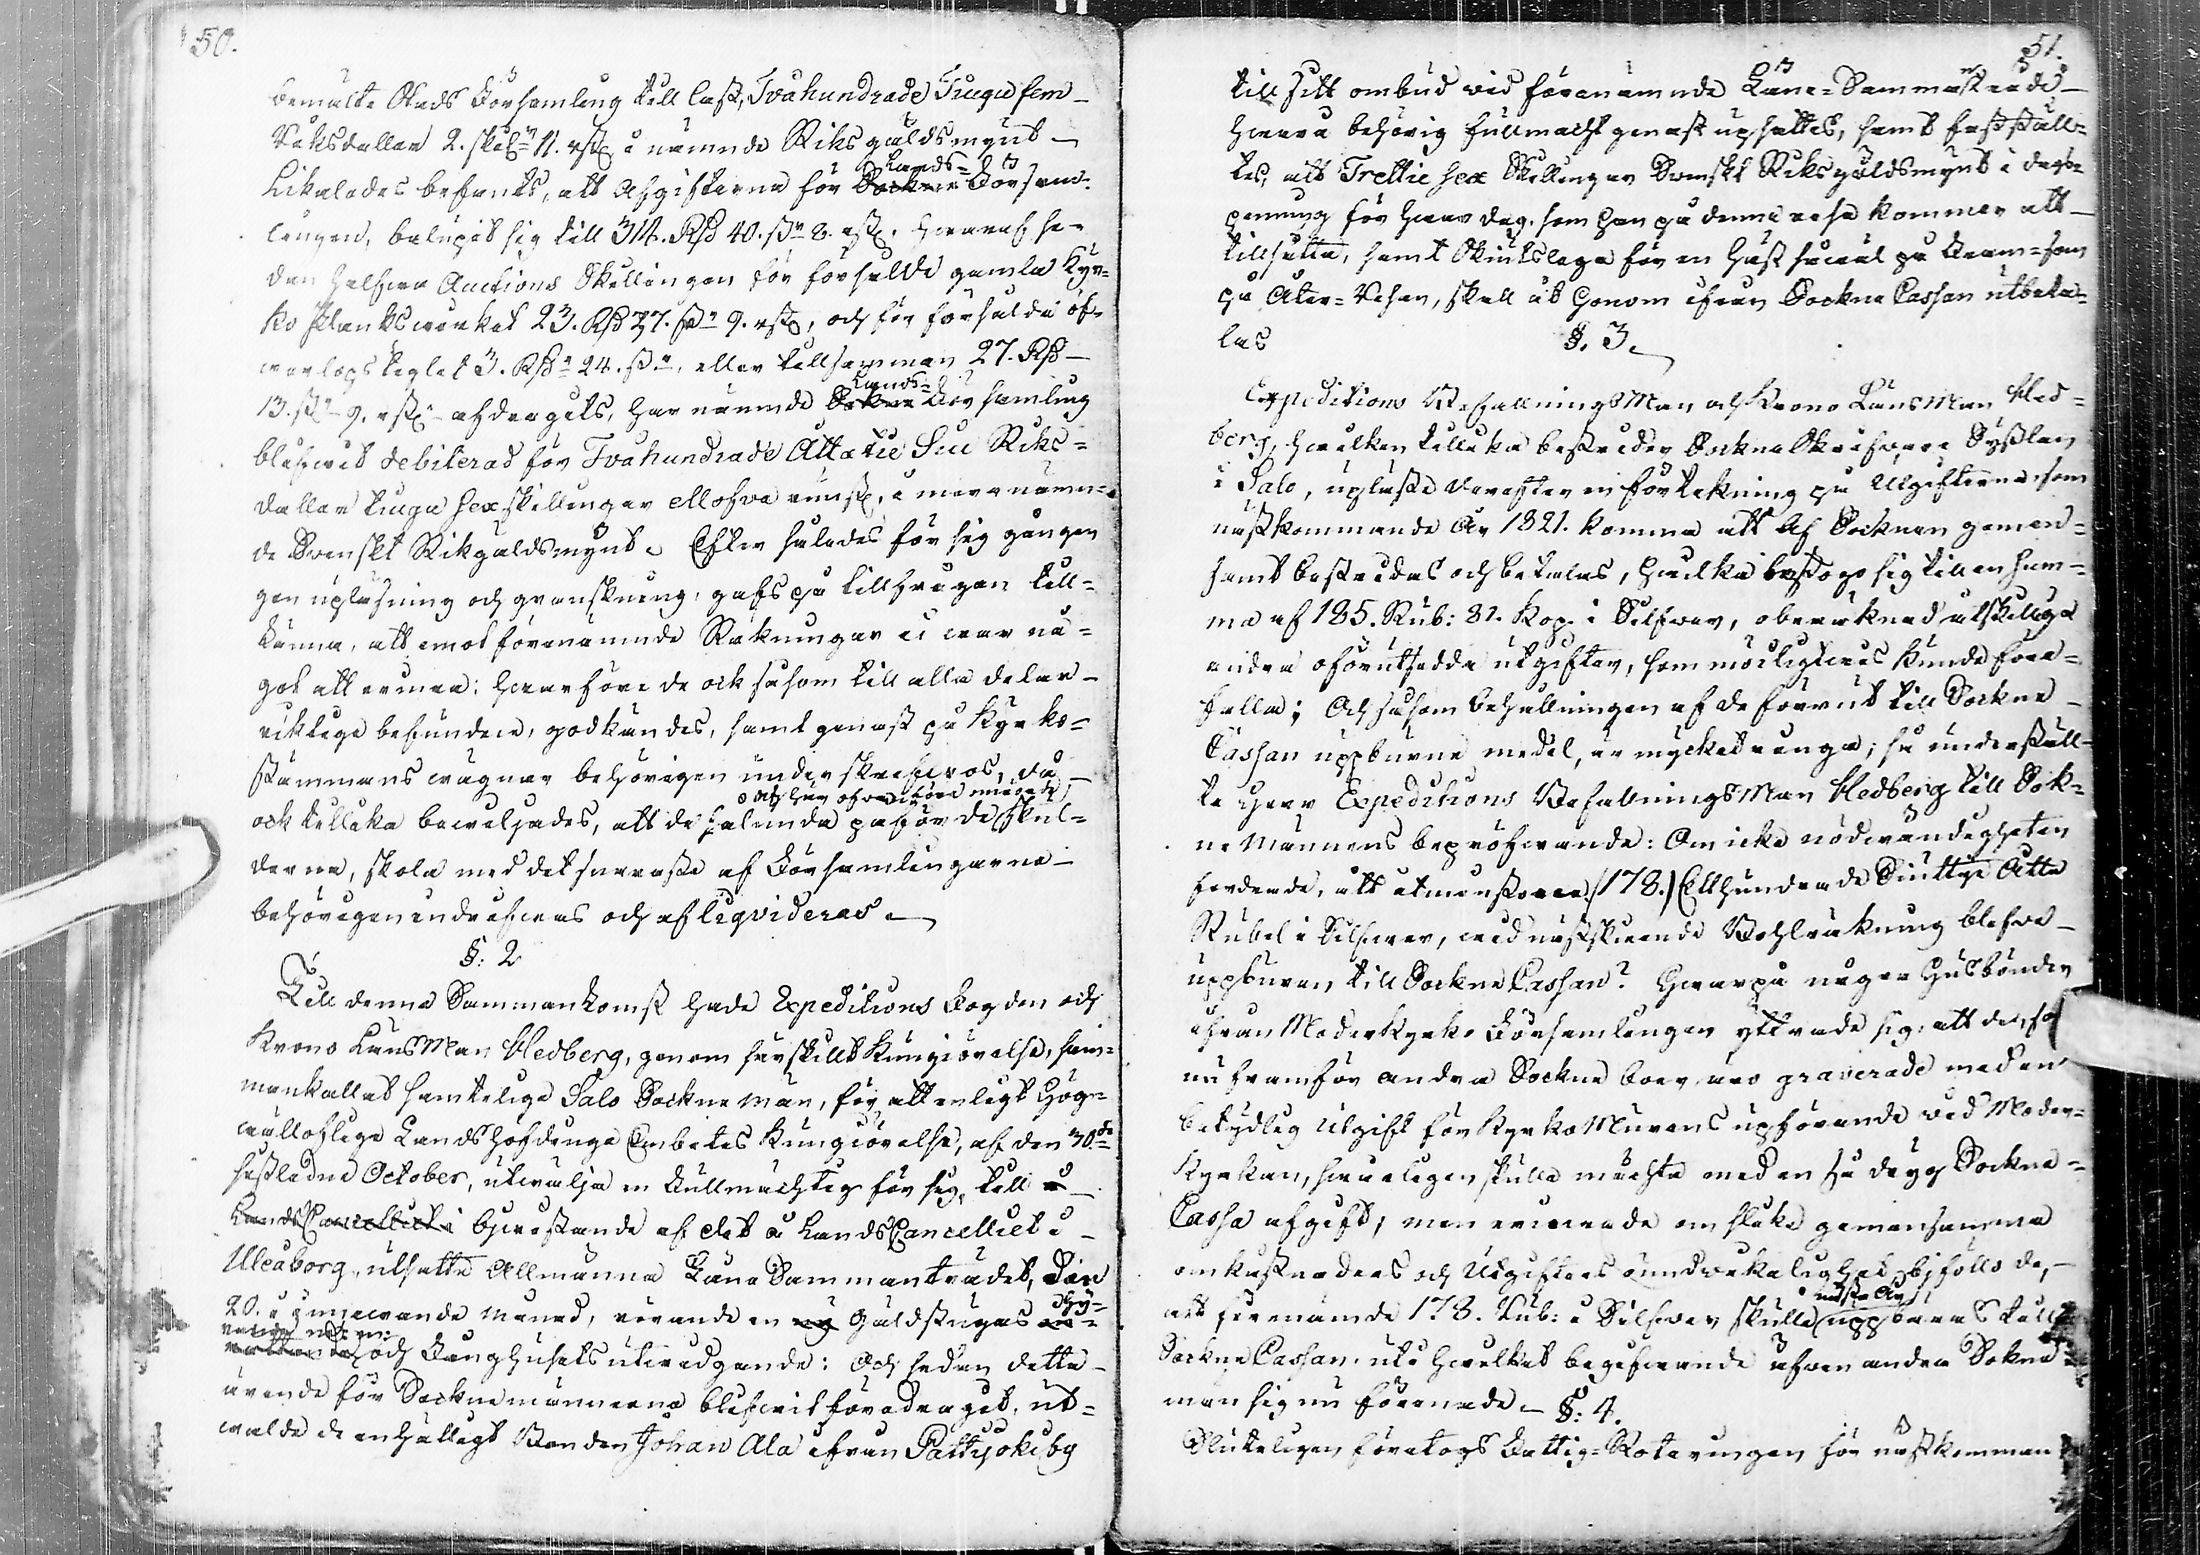 50.
bemälte Stads Församling till last, Tvåhundrade Tiugu fem
Riksdaller 2. skel. 11. rst. i nämnde Riksgäldsmynt
Likaledes befants, att Afgifterna för Lands- Försam-
lingen, belupit sig till 314. Rd 40. s 8. rst. hwaraf se-
dan halfwa Auctions Skillingen för försålde gamla Kyr-
ko Plankwirket 23. Rd 37. s 9. rst, och för försålda öf-
werlops teglet 3. Rd 24. s, eller tillsamman 27. Rd
13. s 9. rst afdragits, har nämnde Lands- Församling
blifwit debiterad för Tvåhundrade Åttatie Siu Riks-
daller tiugu sex skillingar Ellofva runst, i merenämn-
de Svenskt Riksgäldsmynt. Efter således för sig gången
gen upläsning och granskning, gafs på tillfrågan till-
känna, att emot förenämnde Räkningar ei war nå-
got att errinra: hwarföre de ock såsom till alla delar
riktige befundne, godkändes, samt genast på Kyrko-
stämmans wägnar behörigen underskrefwos, då
ock tillika bewiljades, att de sålunda påförde skul-
derna, skola med det snaraste af Församlingarne
behörigen indrifwas och afliqvideras.
§: 2
Till denna Sammankomst hade Expeditions Fogden och
Krono LänsMan Hedberg, genom särskilt Kungiörelse, sam-
mankallat samtelige Salo Sockne män, för att enligt Hög-
wälloflige Landshöfdinge Embetes Kungiörelse, af den 30de
sistledne October, utwälja en Fullmächtig för sig, till
LandsCancelliet i bjwistande af det å LandsCancelliet i
Uleåborg, utsatte Allmänna Läne Sammanträdet, den
20. i innewarande Månad, rörande en ny Gäldstugas
och Fånghusets utwidgande: Och sedan detta
ärende för Socknemännerna blifwit föredraget, ut-
walde de enhälligt Bonden Johan Ala ifrån Pattijoki by
51.
till sitt ombud vid förenämnde Läne-Sammanträde
hwara behörig fullmacht genast upsattes, samt faststäld-
tes, att Trettie sex Skillingar Svenskt Riksgäldsmynt i dags-
penning för hwar dag, som han på denna resa kommer att
tillsätta, samt Skiutslega för en häst såwäl på Fram- som
på Åter-Resan, skall åt honom ifrån Sockne Cassan utbeta-
las
§. 3.
Expeditions BefallningsMan och Krono LänsMan Hed-
berg, hwilken tillika bestrider Sockne Skrifware Sysslan
i Salo, upläste derefter en förtekning på Utgifterna som
nästkommande År 1821. komma att af Socknen gemen-
samt bestridas och betalas, hwilka bestego sig till en sum-
ma af 185. Rub: 81. Kop. i Silfwer, oberäknad åtskillige
andra oförutsedda utgifter, som möiligtwis kunde före-
falla; Och såsom behållningen af de förrut till Sockne
Cassan uppburne medel, är mycket ringa; så underställ-
te Herr Expeditions BefallningsMan Hedberg till Sock-
ne Männens bepröfwande: Om icke nödwändigheten
fordrade, att åtminstone (178.) Etthundrade Siuttye Åtta
Rubel i Silfwer, wid nästskeende Bohlräkning blefwe
uppburen till Sockne Cassan? Hwarpå någre Husbönder
ifrån Moderkyrko Församlingen yttrade sig, att de, so
nu framför andra Sockne boer äro graverade med en
betydlig utgift för Kyrko Murens upförande wid Moder-
Kyrkan, swårligen skulle mächta med en så dryg Sockne-
Cassa afgift; men errinrade om slika gemensamma
omkåstnaders och Utgifters oundwikelighet, biföllo de,
att förenämnde 178. Rub: i Silfwer skulle nästa År uppbäras till
Sockne Cassan, uti hwilket begifwande äfwen andra Sokne
män sig nu förenade.
§: 4.
Sluteligen företogs Fattig-Roteringen för nästkomman